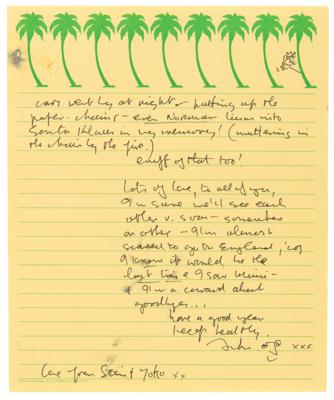 cars went by at night - putting up the
paper-chains - even Norman turns into
Santa Klaus in my memory! (muttering in
the chair by the fire.)
enuff of that too!
Lots of love, to all of you,
I'm sure we'll see each
other v. soon - somewhere
or other - I'm almost
scared to go to England, 'cos
I know it would be the
last time I saw Mimi -
I'm a coward about
goodbyes...
have a good year
keep healthy,
John xxx
love from Sean & Yoko xx